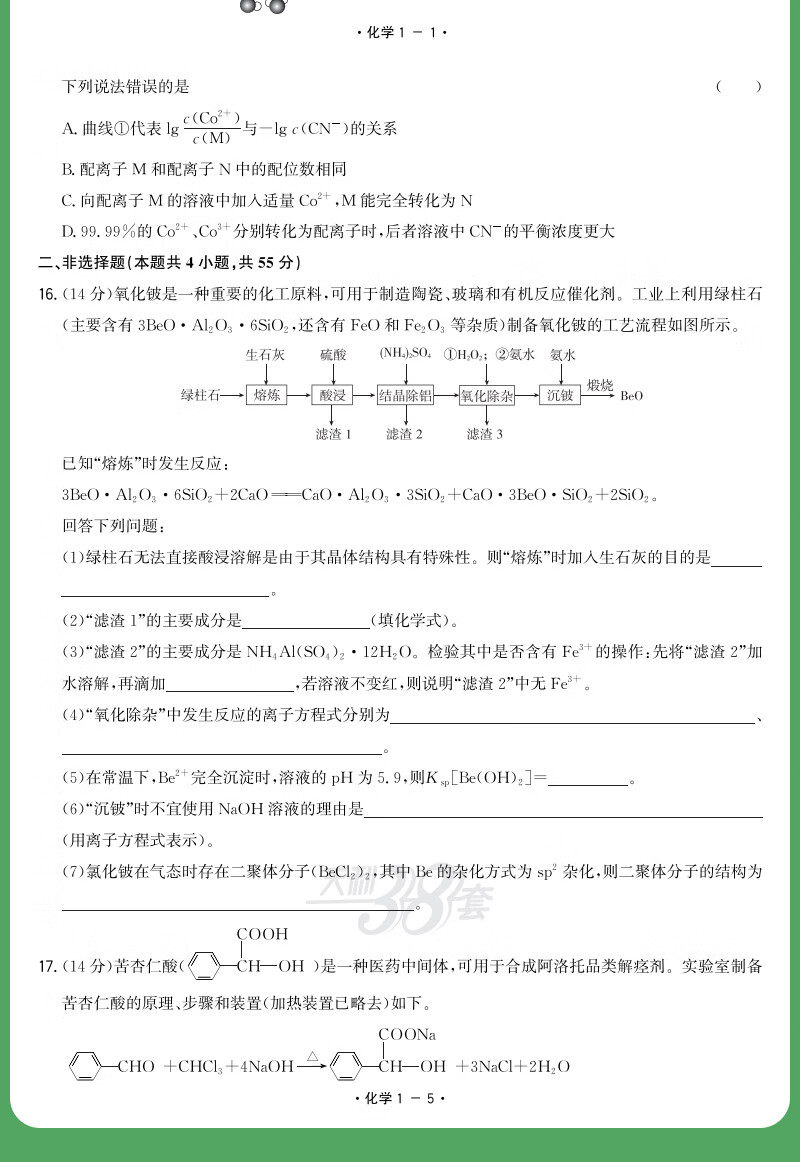 ·化学1-1·
下列说法错误的是 ( )
A. 曲线①代表 lg c(Co²⁺)/c(M) 与-lg c(CN⁻)的关系
B. 配离子 M 和配离子 N 中的配位数相同
C. 向配离子 M 的溶液中加入适量 Co²⁺,M 能完全转化为 N
D. 99.99%的 Co²⁺、Co³⁺分别转化为配离子时,后者溶液中 CN⁻的平衡浓度更大
二、非选择题(本题共 4 小题,共 55 分)
16. (14 分)氧化铍是一种重要的化工原料,可用于制造陶瓷、玻璃和有机反应催化剂。工业上利用绿柱石
(主要含有 3BeO·Al₂O₃·6SiO₂,还含有 FeO 和 Fe₂O₃ 等杂质)制备氧化铍的工艺流程如图所示。
生石灰 硫酸 (NH₄)₂SO₄ ①H₂O₂;②氨水 氨水
绿柱石 熔炼 酸浸 结晶除铝 氧化除杂 沉铍 煅烧 BeO
滤渣 1 滤渣 2 滤渣 3
已知“熔炼”时发生反应:
3BeO·Al₂O₃·6SiO₂+2CaO══CaO·Al₂O₃·3SiO₂+CaO·3BeO·SiO₂+2SiO₂。
回答下列问题:
(1)绿柱石无法直接酸浸溶解是由于其晶体结构具有特殊性。则“熔炼”时加入生石灰的目的是______
______。
(2)“滤渣 1”的主要成分是______(填化学式)。
(3)“滤渣 2”的主要成分是 NH₄Al(SO₄)₂·12H₂O。检验其中是否含有 Fe³⁺的操作:先将“滤渣 2”加
水溶解,再滴加______,若溶液不变红,则说明“滤渣 2”中无 Fe³⁺。
(4)“氧化除杂”中发生反应的离子方程式分别为______、
______。
(5)在常温下,Be²⁺完全沉淀时,溶液的 pH 为 5.9,则Kₛₚ[Be(OH)₂]=______。
(6)“沉铍”时不宜使用 NaOH 溶液的理由是______
(用离子方程式表示)。
(7)氯化铍在气态时存在二聚体分子(BeCl₂)₂,其中 Be 的杂化方式为 sp² 杂化,则二聚体分子的结构为
______。
天利38套
COOH
17. (14 分)苦杏仁酸( CH—OH )是一种医药中间体,可用于合成阿洛托品类解痉剂。实验室制备
苦杏仁酸的原理、步骤和装置(加热装置已略去)如下。
COONa
CHO +CHCl₃+4NaOH △→ CH—OH +3NaCl+2H₂O
·化学1-5·